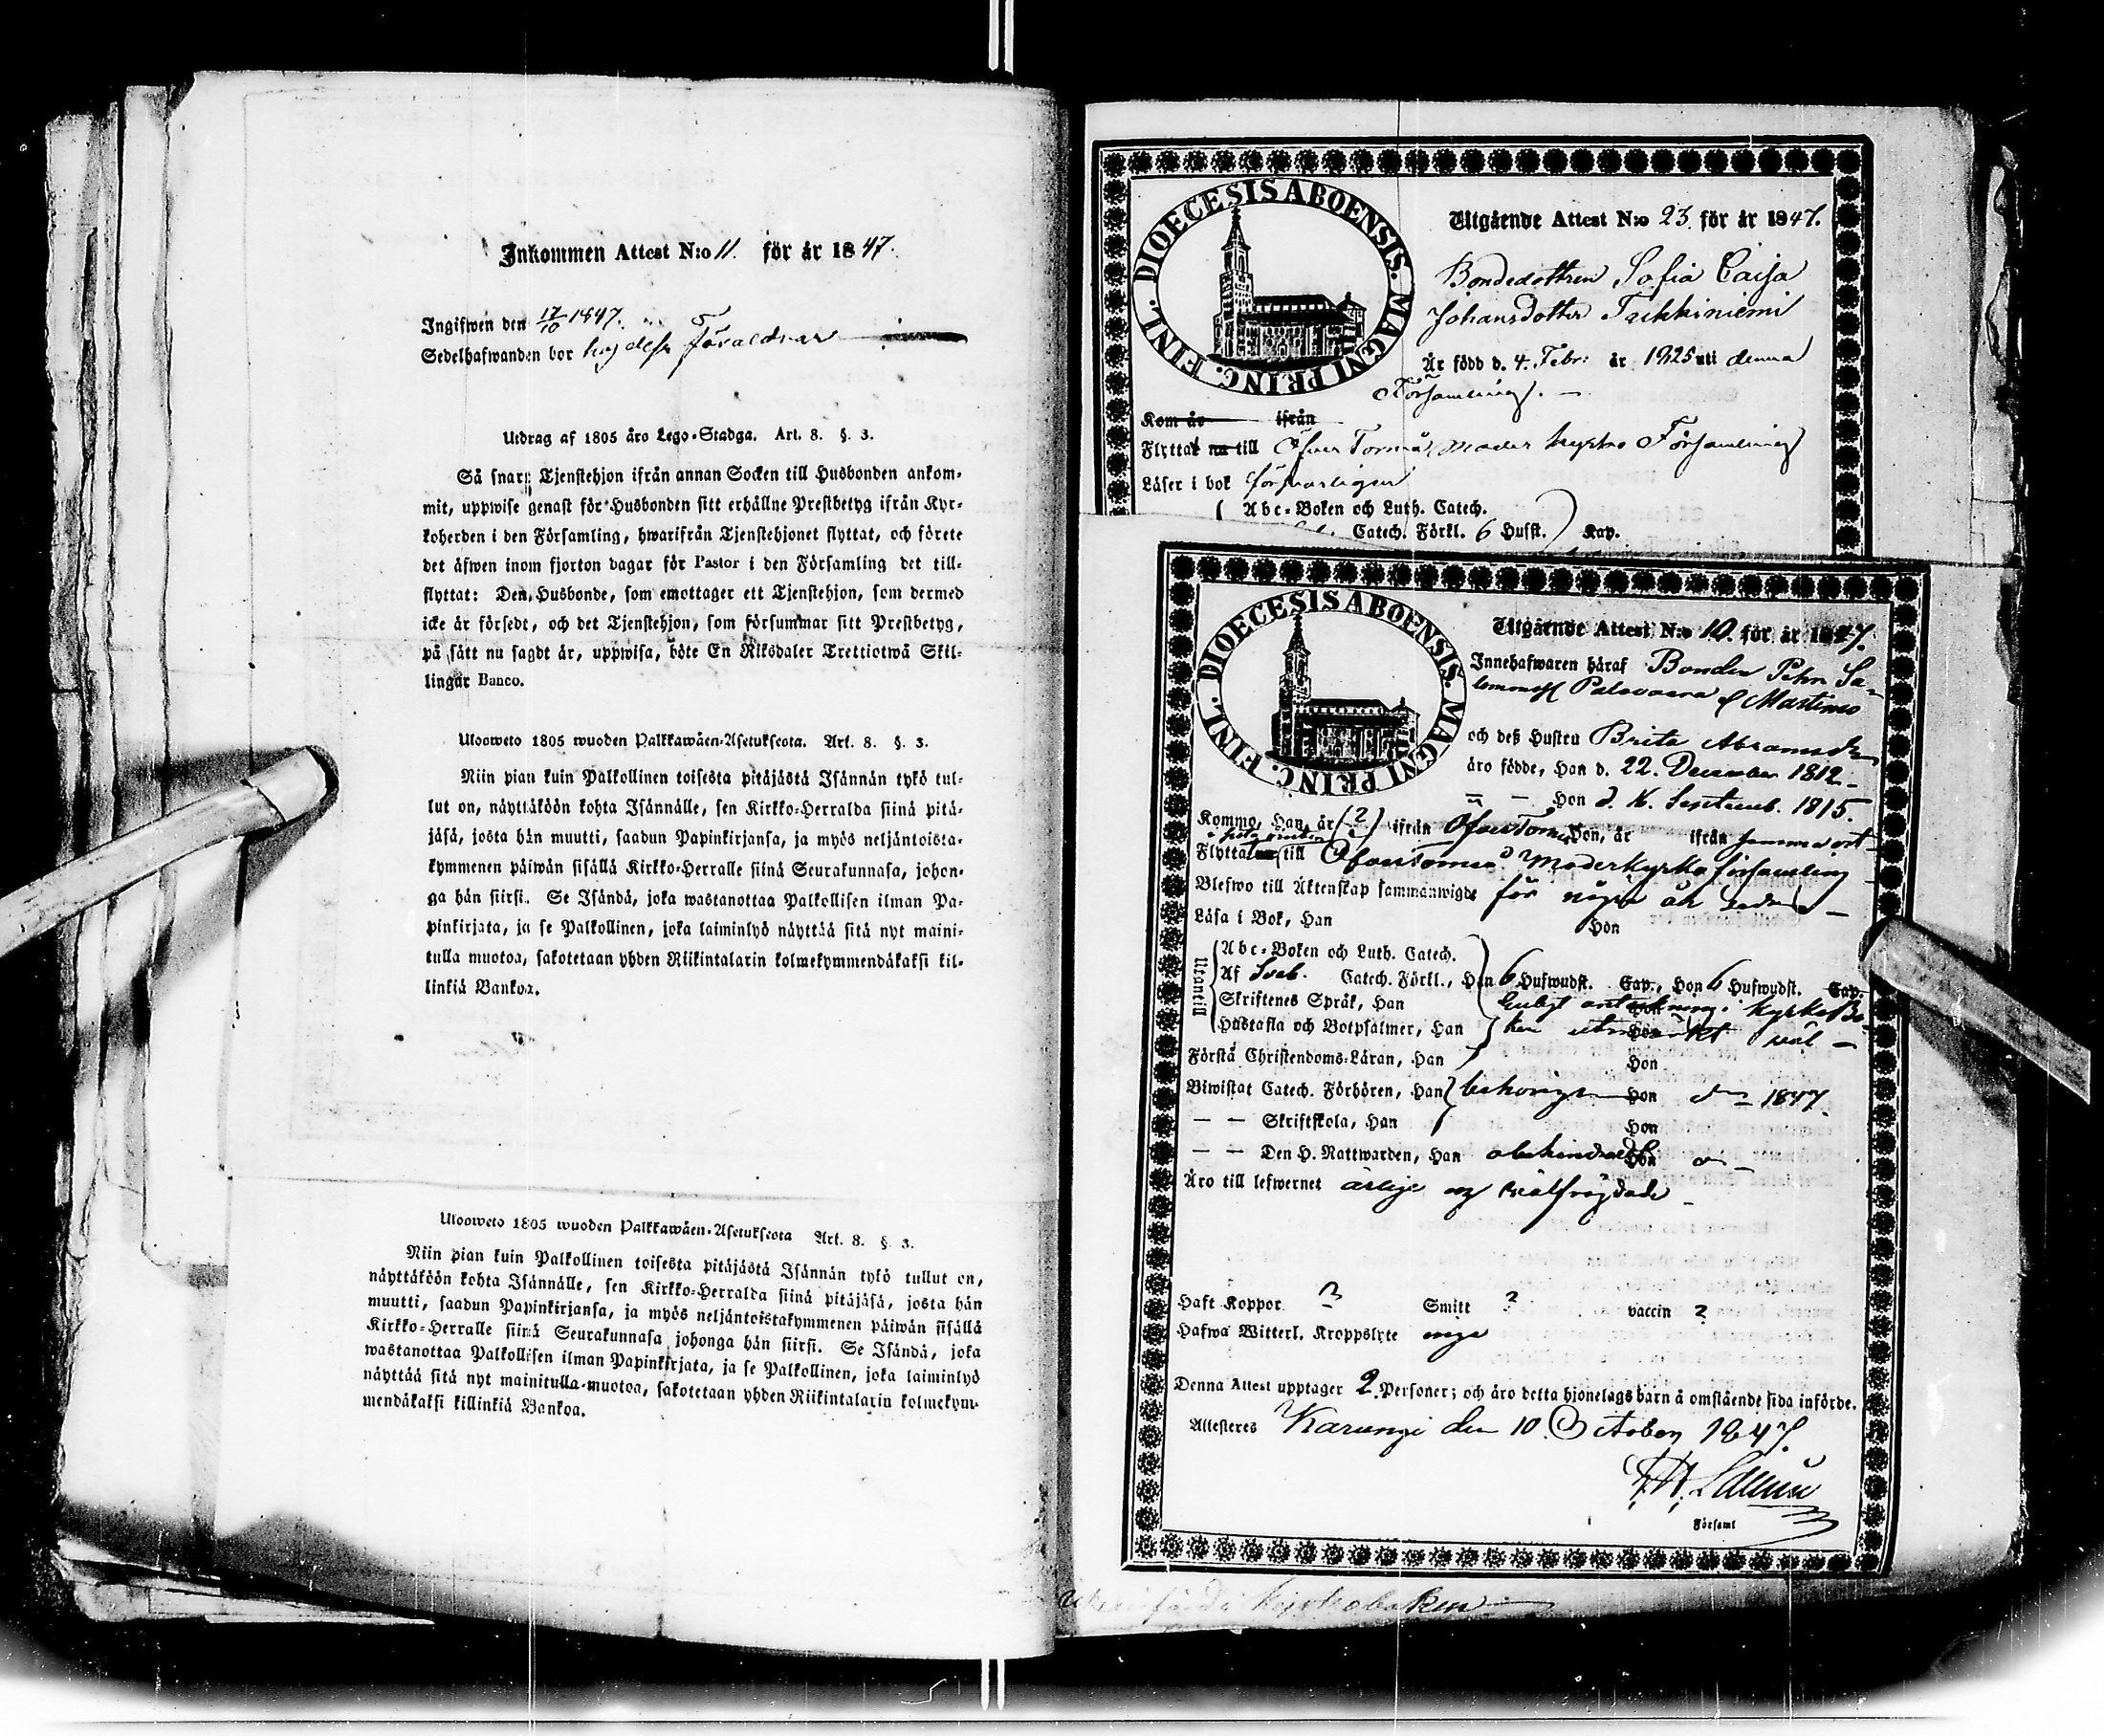 Inkommen Attest N:o 11. för år 1847.
Ingifwen den 17/10 1847.
Sedelhafwanden bor hos dess Föräldrar
Utdrag af 1805 års Lego-Stadga. Art. 8. §. 3.
Så snart Tjenstehjon ifrån annan Socken till Husbonden ankom-
mit, uppwise genast för Husbonden sitt erhållne Prestbetyg ifrån Kyr-
koherden i den Församling, hwarifrån Tjenstehjonet flyttat, och förete
det äfwen inom fjorton dagar för Pastor i den Församling det till-
flyttat: Den Husbonde, som emottager ett Tjenstehjon, som dermed
icke är försedt, och det Tjenstehjon, som försummar sitt Prestbetyg,
på sätt nu sagdt är, uppwisa, böte En Riksdaler Trettiotwå Skil-
lingar Banco.
Ulosweto 1805 wuoden Palkkawäen-Asetuksesta. Art. 8. §. 3.
Niin pian kuin Palkollinen toisesta pitäjästä Isännän tykö tul-
lut on, näyttäköön kohta Isännälle, sen Kirkko-Herralda siinä pitä-
jäsä, josta hän muutti, saadun Papinkirjansa, ja myös neljäntoista-
kymmenen päiwän sisällä Kirkko-Herralle siinä Seurakunnasa, johon-
ga hän siirsi. Se Isändä, joka wastanottaa Palkollisen ilman Pa-
pinkirjata, ja se Palkollinen, joka laiminlyö näyttää sitä nyt maini-
tulla muotoa, sakotetaan yhden Riikintalarin kolmekymmendäkaksi kil-
linkiä Bankoa.
Ulosweto 1805 wuoden Palkkawäen-Asetuksesta Art. 8. §. 3.
Niin pian kuin Palkollinen toisesta pitäjästä Isännän tykö tullut on,
näyttäköön kohta Isännälle, sen Kirkko-Herralda siinä pitäjäsä, josta hän
muutti, saadun Papinkirjansa, ja myös neljäntoistakymmenen päiwän sisällä
Kirkko-Herralle siinä Seurakunnasa johonga hän siirsi. Se Isändä, joka
wastanottaa Palkollisen ilman Papinkirjata, ja se Palkollinen, joka laiminlyö
näyttää sitä nyt mainitulla muotoa, sakotetaan yhden Riikintalarin kolmekym-
mendäkaksi killinkiä Bankoa.
DIOECESIS ABOENSIS. MAGNI PRINC. FINL.
Utgående Attest N:o 23. för år 1847.
Bondedottren Sofia Caisa
Johansdotter Takkiniemi
Är född d. 4. Febr: år 1825 uti denna
Församling.
Kom år ifrån
Flyttat nu till Öfver Torneå moder kyrko Församling
Läser i bok försvarligen
Abc-Boken och Luth. Catech.
Catech. Förkl. 6 Hufst. Kap.
DIOECESIS ABOENSIS. MAGNI PRINC. FINL.
Utgående Attest N:o 10. för år 1847.
Innehafwaren häraf Bonden Pehr Sa-
lomonss. Palovaara f Martimo
och deß Hustru Brita Abramsdr
äro födde, Han d. 22. December 1812
— — Hon d. 16. Septemb. 1815.
Kommo, Han, år (?) ifrån ÖfverTorneå Hon, år ifrån samma ort
Flytta till ÖfverTorneå Moderkyrko församling
Blefwo till Äktenskap sammanwigde för några år sedan
Läsa i Bok, Han Hon
Utantill
Abc-Boken och Luth. Catech.
Af Sveb. Catech. Förkl., Han 6 Hufwudst. Cap., Hon 6 Hufwudst. Cap.
Skriftenes Språk, Han enligt anteckning i kyrko Bo-
Hustafla och Botpsalmer, Han ken utmärkt väl
Förstå Christendoms-Läran, Han Hon
Biwistat Catech. Förhören, Han Hon 1847.
— — Skriftskola, Han Hon
— — Den H. Nattwarden, Han obehindradt Hon
Äro till lefwernet ärlige och välfrägdade
Haft Koppor ? Smitt ? vaccin ?
Hafwa Witterl. Kroppslyte inga
Denna Attest upptager 2. Personer; och äro detta hjonelags barn å omstående sida införde.
Attesteres Karungi den 10. October 1847.
Församl
kyrkoboken